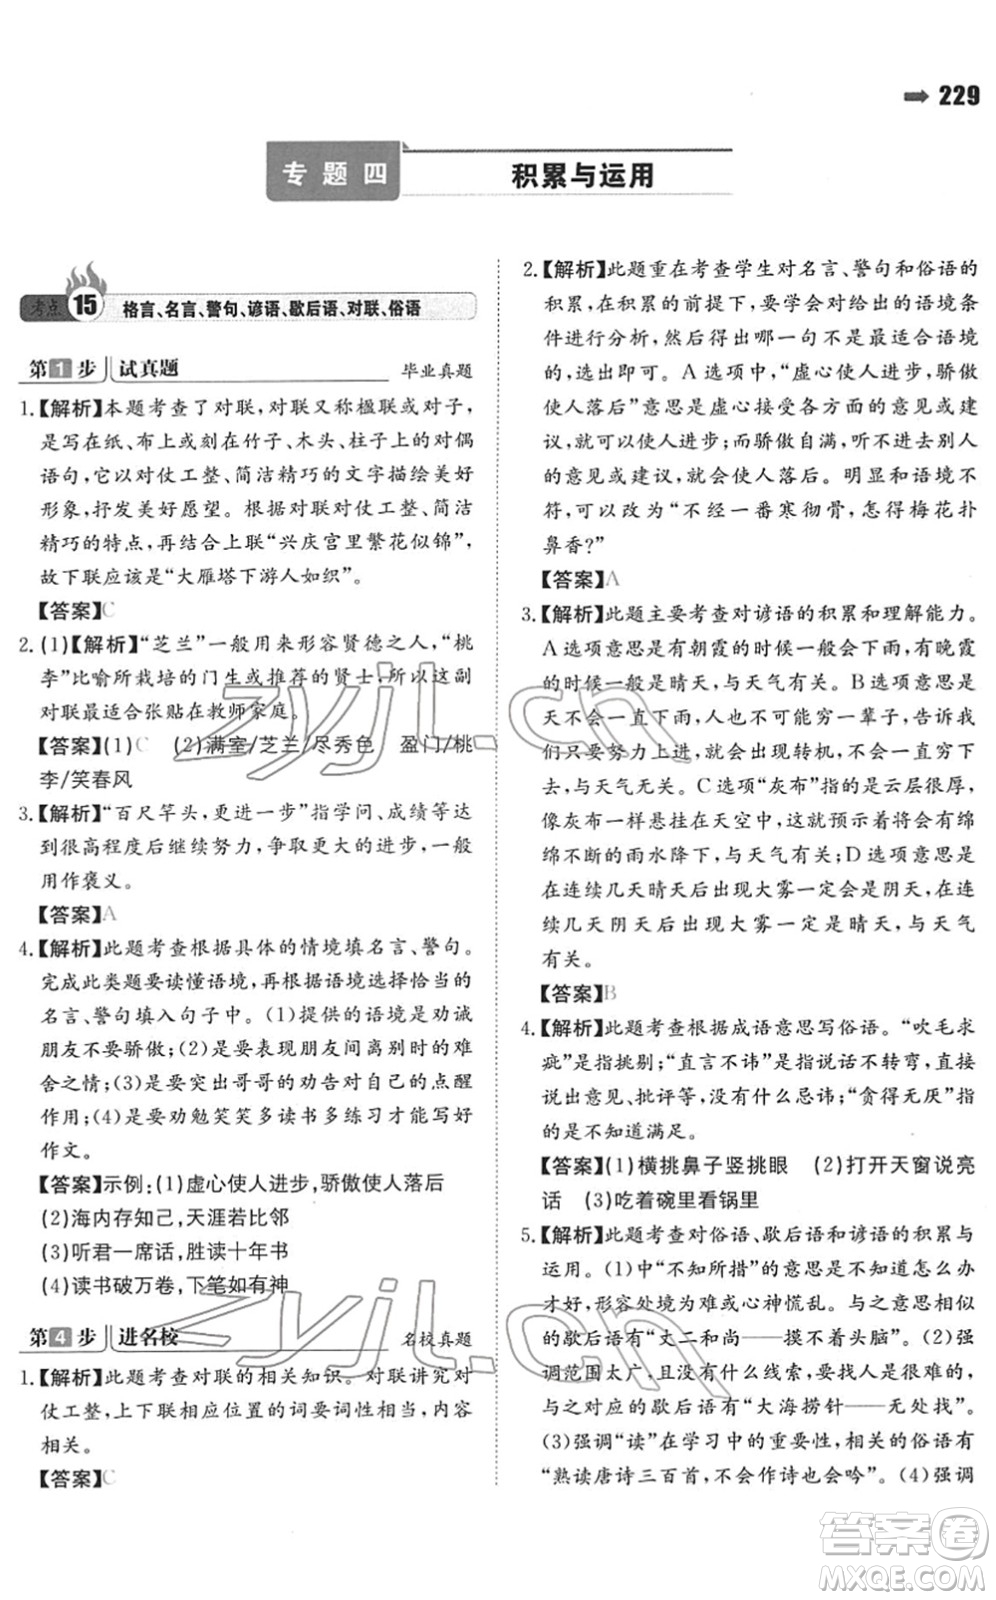 229
专题四 积累与运用
考点 15 格言、名言、警句、谚语、歇后语、对联、俗语
第1步 试真题 毕业真题
1.【解析】本题考查了对联,对联又称楹联或对子,
是写在纸、布上或刻在竹子、木头、柱子上的对偶
语句,它以对仗工整、简洁精巧的文字描绘美好
形象,抒发美好愿望。根据对联对仗工整、简洁
精巧的特点,再结合上联“兴庆宫里繁花似锦”,
故下联应该是“大雁塔下游人如织”。
【答案】C
2.(1)【解析】“芝兰”一般用来形容贤德之人,“桃
李”比喻所栽培的门生或推荐的贤士,所以这副
对联最适合张贴在教师家庭。
【答案】(1)C (2)满室/芝兰/尽秀色 盈门/桃
李/笑春风
3.【解析】“百尺竿头,更进一步”指学问、成绩等达
到很高程度后继续努力,争取更大的进步,一般
用作褒义。
【答案】A
4.【解析】此题考查根据具体的情境填名言、警句。
完成此类题要读懂语境,再根据语境选择恰当的
名言、警句填入句子中。(1)提供的语境是劝诫
朋友不要骄傲;(2)是要表现出与朋友分别时的难
舍之情;(3)是要突出哥哥的劝告对自己的点醒
作用;(4)是要劝勉笑笑多读书多练习才能写好
作文。
【答案】示例:(1)虚心使人进步,骄傲使人落后
(2)海内存知己,天涯若比邻
(3)听君一席话,胜读十年书
(4)读书破万卷,下笔如有神
第4步 进名校 名校真题
1.【解析】此题考查对联的相关知识。对联讲究对
仗工整,上下联相应位置的词要词性相同,内容
相关。
【答案】C
2.【解析】此题重在考查学生对名言、警句和俗语的
积累,并能够通过对给出的语境条
件进行分析,从而得出哪一句不适合语境
的,选出即可。A选项中,“虚心使人进步,骄傲
使人落后”意思是虚心接受各方面的意见或建
议,就可以使人进步;而骄傲自满,听不进去别人
的意见或建议,就会使人落后。明显和语境不
符!应该为“不经一番寒彻骨,怎得梅花扑
鼻香?”
【答案】A
3.【解析】此题主要考查对谚语的积累和理解能力。
A选项意思是有朝霞的时候一般是雨天,有晚霞
的时候一般是晴天,与天气有关。B选项意思是
天不会一直下雨,人不可能穷一辈子,告诉我
们,只要努力上进,就会出现转机,不会一直穷下
去,与天气无关。C选项“灰布”指的是云层很厚,
像灰布一样悬挂在天空中,预示着会有绵
绵不断的雨水降下,与天气有关;D选项意思是
在连续几天晴天后出现大雾一般会是阴天,在连
续几天阴天后出现大雾一般是晴天,与天气
有关。
【答案】B
4.【解析】此题考查根据成语意思写俗语。“吹毛求
疵”是指挑剔;“直言不讳”是指说话不转弯,直接
说出意见、批评等,没有什么忌讳;“贪得无厌”指
的是不知道满足。
【答案】(1)横挑鼻子竖挑眼 (2)打开天窗说亮
话 (3)吃着碗里看锅里
5.【解析】此题考查对俗语、歇后语和谚语的积累与
运用。(1)中“不知所措”的意思是不知道怎么办
才好,形容处境为难或心神慌乱。与之意思相似
的歇后语有“丈二和尚——摸不着头脑”。(2)强
调范围太广,且没有什么线索,要找人是很难的,
与之对应的歇后语有“大海捞针——无处找”。
(3)强调“读”在学习中的重要性,相关的俗语有
“熟读唐诗三百首,不会作诗也会吟”。(4)强调
zyjl.cn
zyjl.cn
答案圈
MXQE.COM